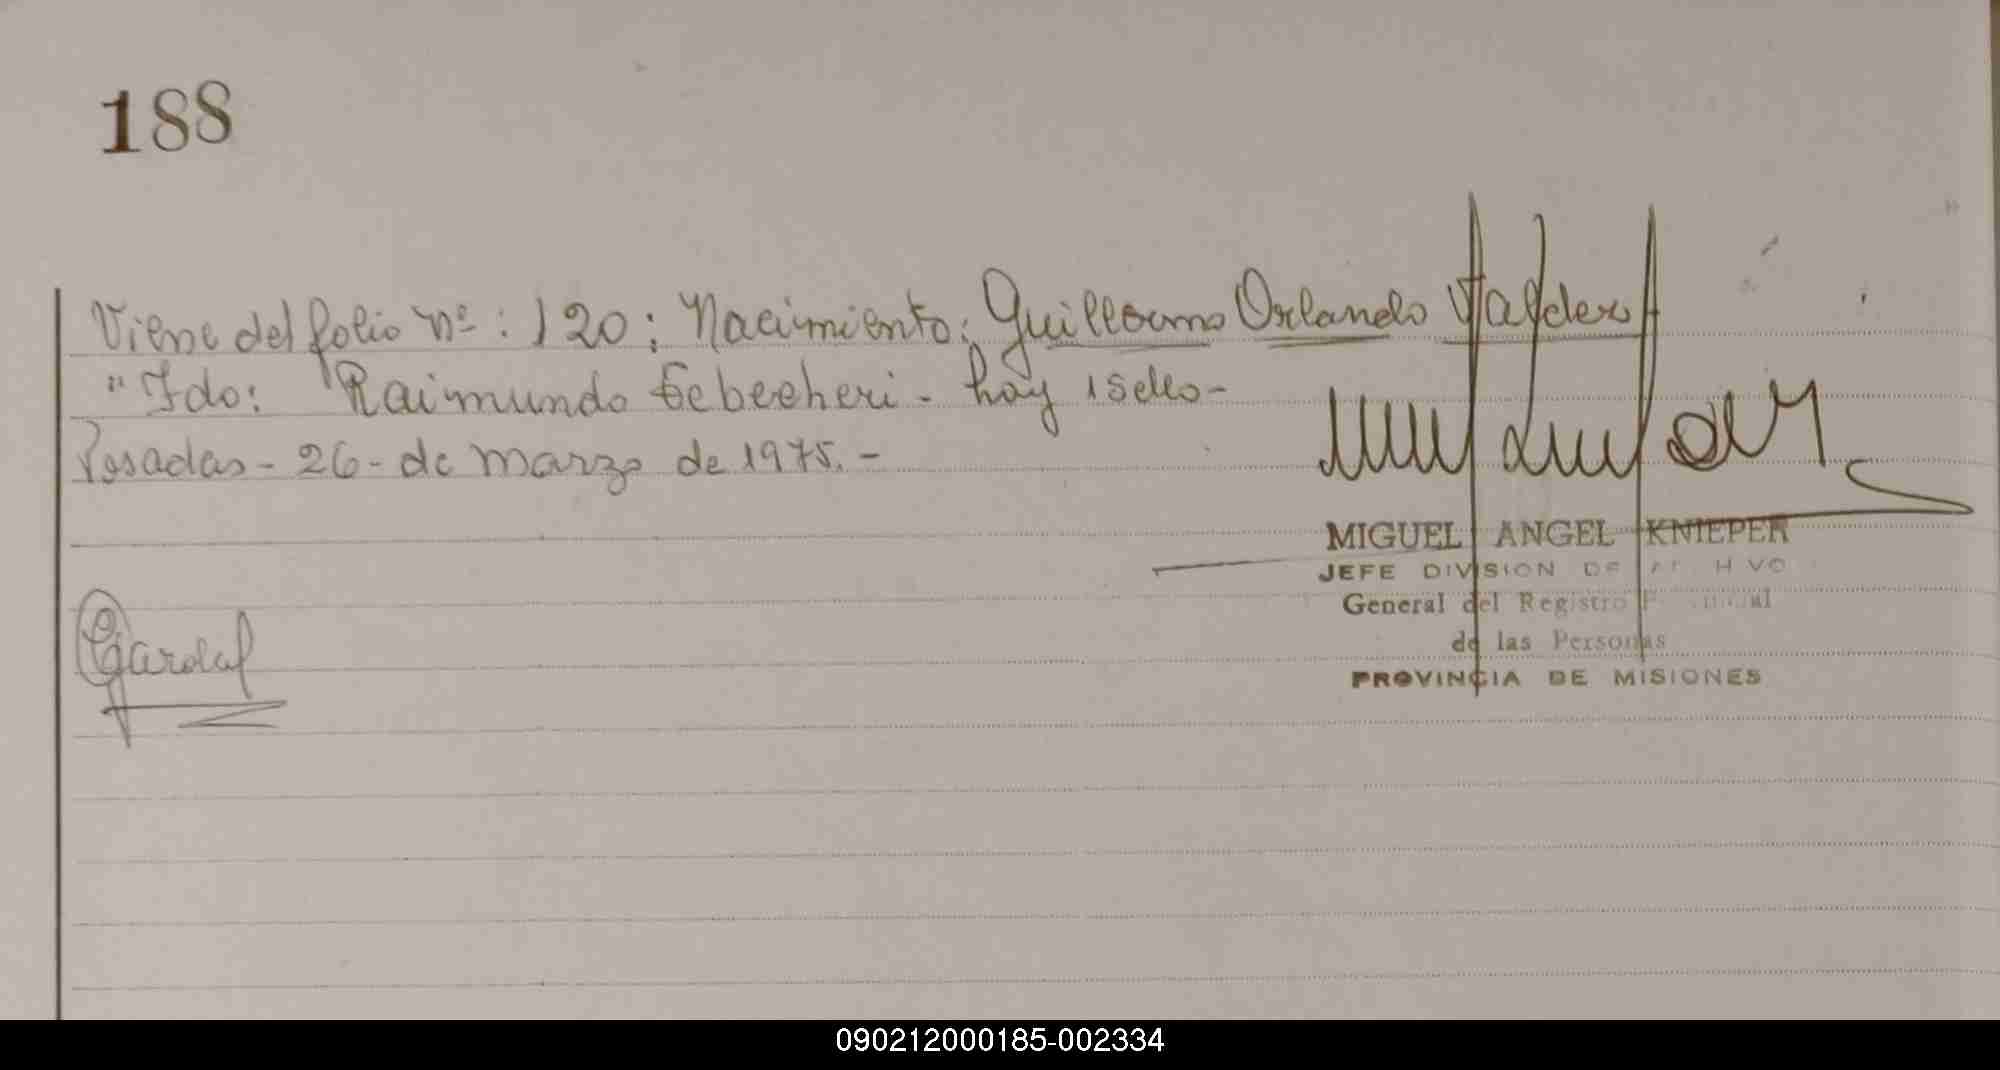 188
Viene del folio nº: 120; Nacimiento; Guillermo Orlando Valdez
"Fdo: Raimundo hay 1 sello-
Posadas - 26 - de marzo de 1975.-
MIGUEL ANGEL KNIEPER
JEFE DIVISION DE ARCHIVO
General del Registro Provincial
de las Personas
PROVINCIA DE MISIONES
090212000185-002334